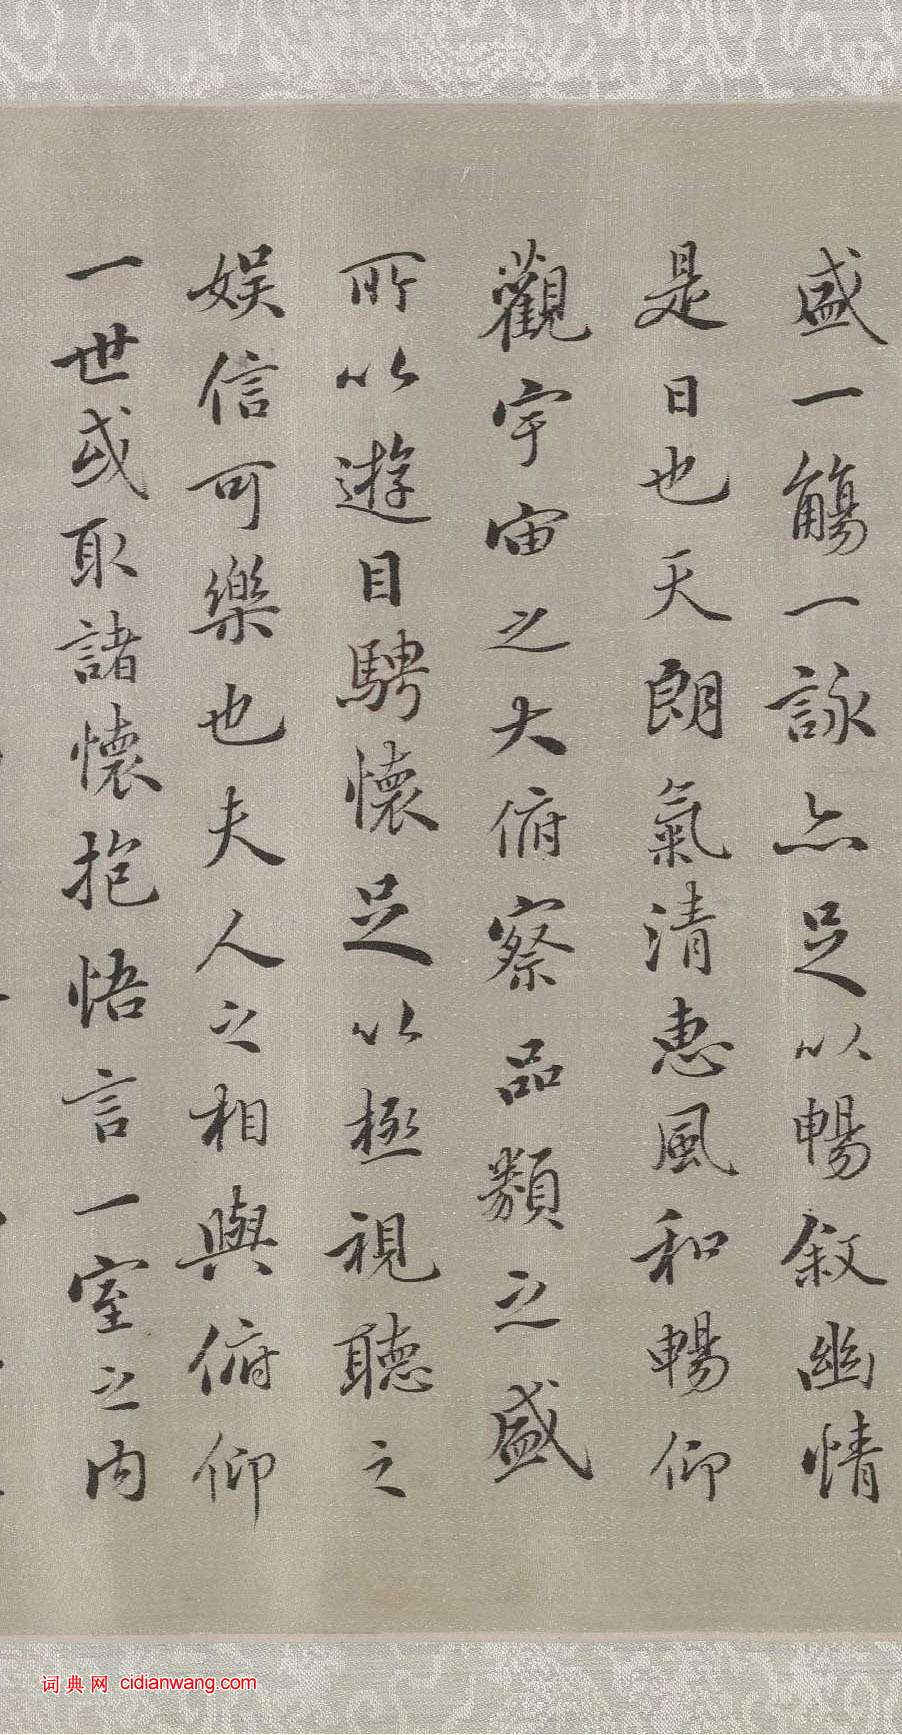 盛一觴一詠亦足以暢敘幽情
是日也天朗氣清惠風和暢仰
觀宇宙之大俯察品類之盛
所以遊目騁懷足以極視聽之
娛信可樂也夫人之相與俯仰
一世或取諸懷抱悟言一室之內
词典网 cidianwang.com